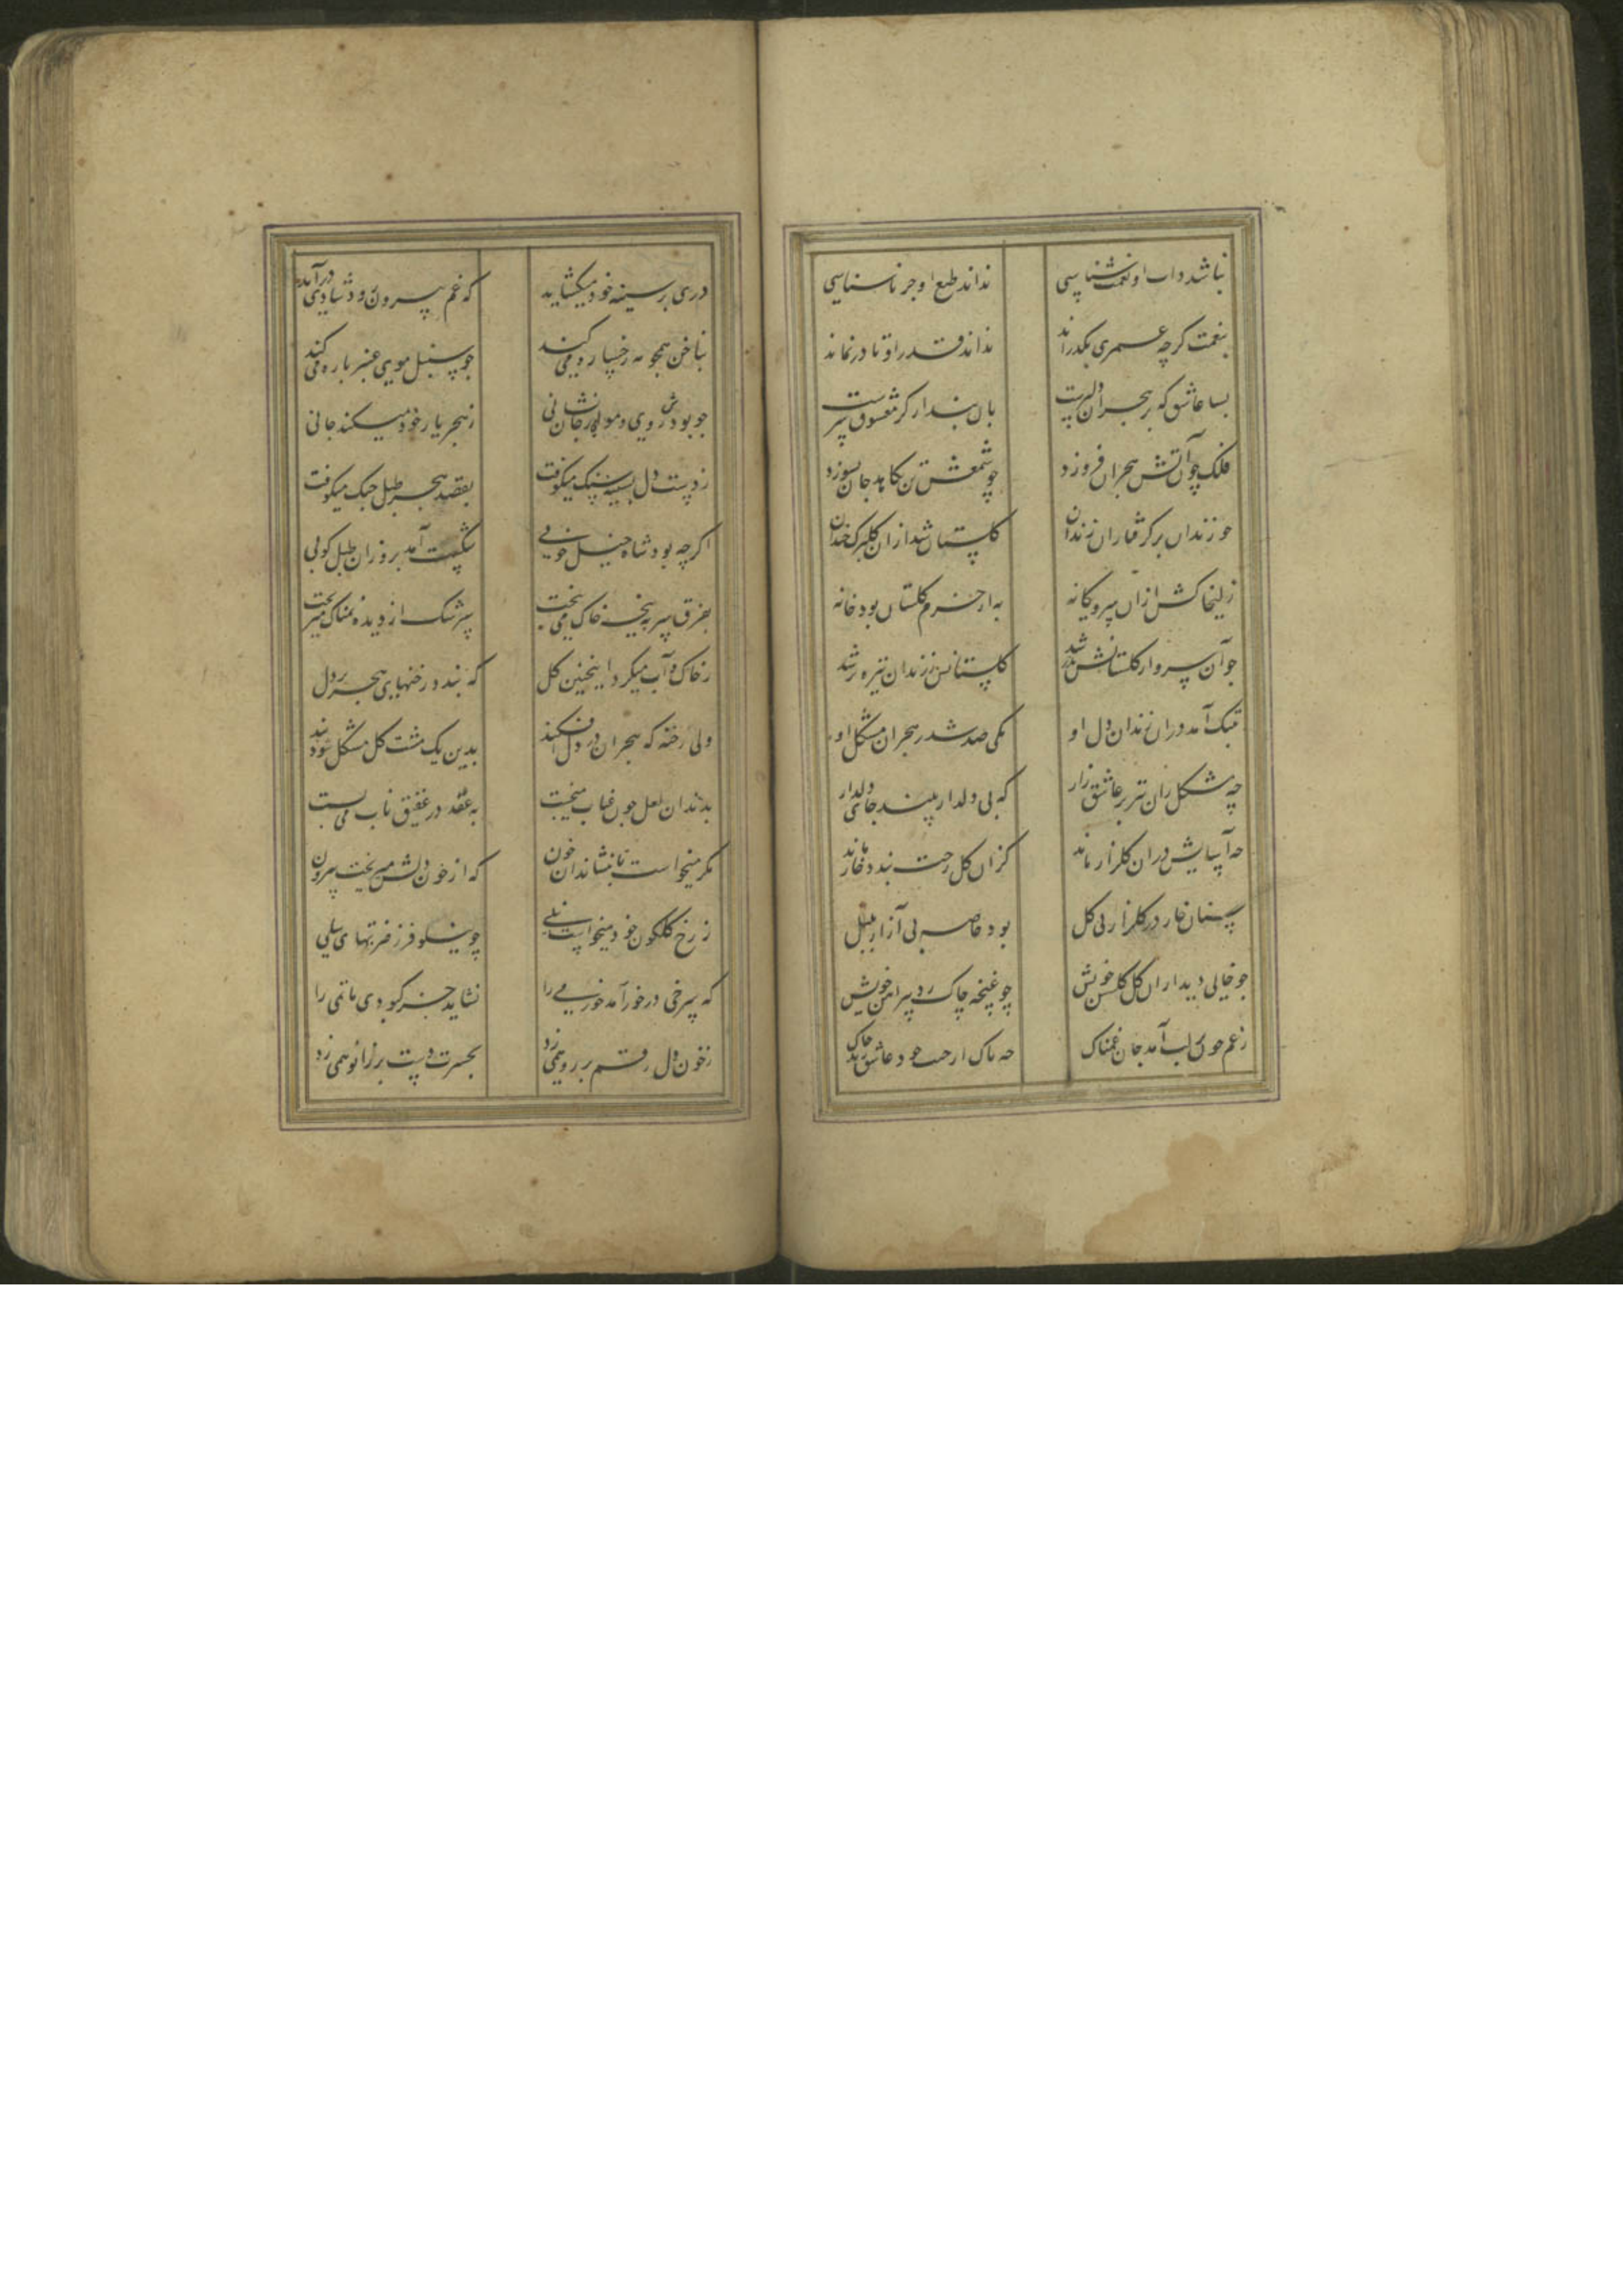 نباشد داب او نعمت شناسی نداند طبع او جز ناسپاسی
بنعمت کرچه عمری بکذراند نداند قدر او تا درنماند
بسا عاشق که بر هجران دلیرست بان پندار کز معشوق سیرست
فلک چون آتش هجران فروزد چو شمعش تن بکاهد جان بسوزد
چو زندان بر کرفتاران زندان کلستان شد ازان کلبرک خندان
زلیخا کش ازان سرو یکانه به از خرم کلستان بود خانه
چو آن سرو از کلستانش بدر شد کلستانش ز زندان تیره تر شد
بتنک آمد دران زندان دل او یکی صد شد ز هجران مشکل او
چه مشکل زان تبر بر عاشق زار که بی دلدار بیند جای دلدار
چه آسایش دران کلزار ماند کزان کل رخت بندد خار ماند
سنان خار در کلزار بی کل بود خاصه پی آزار بلبل
چو خالی دید ازان کل کلشن خویش چو غنچه چاک زد پیراهن خویش
ز غم چون بر لب آمد جان غمناک چه باک ار جیب خود عاشق زند چاک
دری بر سینه خود میکشاید که غم بیرون رود شادی درآید
بناخن همچو مه رخساره میکند چو سنبل موی عنبر باره میکند
چو بودش روی و مو از جان نشانی ز هجر یار خود میکند جانی
ز دست دل بسینه سنک میکوفت بقصد هجر طبل جنک میکوفت
اکرچه بود شاه خیل خوبی شکست آمد برو زان طبل کوبی
بفرق سر به پنجه خاک می بیخت سرشک از دیده نمناک میریخت
ز خاک و آب میکرد اینچنین کل که بندد رخنهای هجر بر دل
ولی رخنه که هجران در دل افکند بدین یک مشت کل مشکل شود بند
بدندان لعل چون عناب میخست به عقد در عقیق ناب می بست
مکر میخواست تا بنشاند آن خون که از خون دلش میریخت بیرون
ز رخ کلکون خود میخواست نیلی چو نیلوفر ز ضربتهای سیلی
که سرخی درخور آمد خرمی را نشاید جز کبودی ماتمی را
ز خون دل رقم بر رو همی زد بحسرت دست بر زانو همی زد